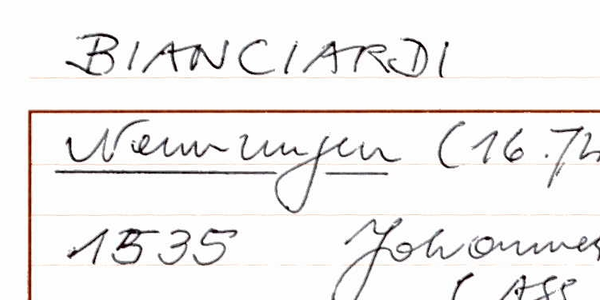 BIANCIARDI
Nennungen (16.Jh
1535 Johannes
(Ass